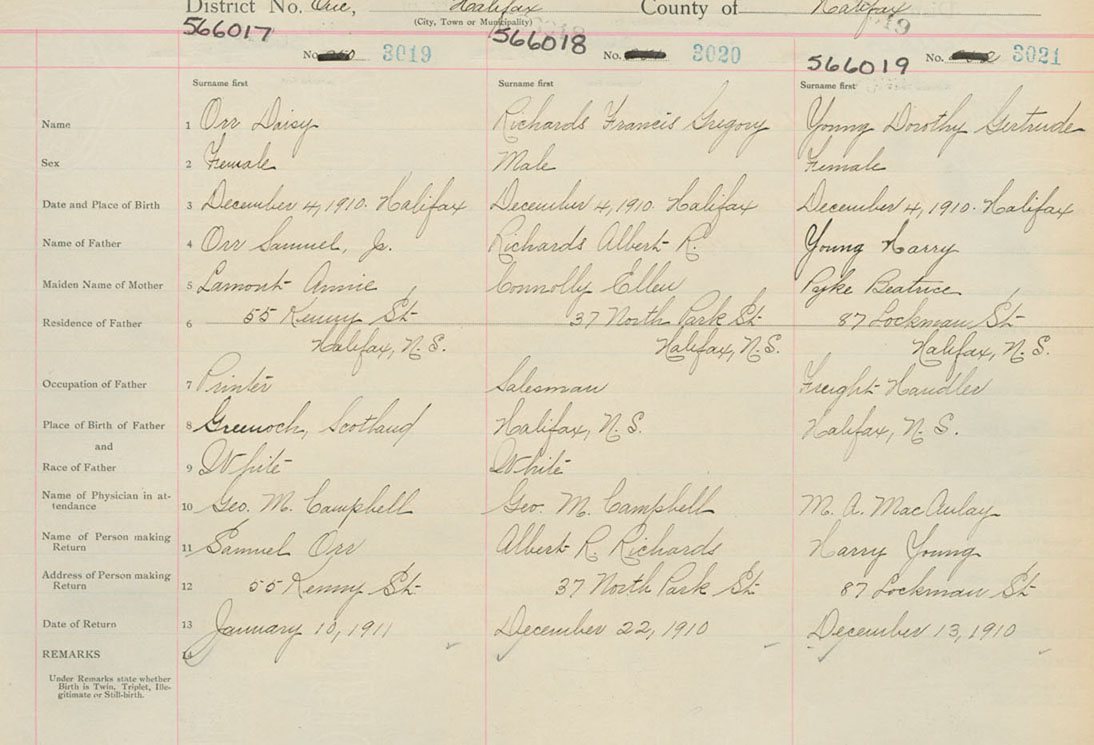 District No. One, Halifax County of Halifax
(City, Town or Municipality)
566017 566018 566019
No. 3019 No. 3020 No. 3021
Surname first Surname first Surname first
Name 1 Orr Daisy Richards Francis Gregory Young Dorothy Gertrude
Sex 2 Female Male Female
Date and Place of Birth 3 December 4, 1910. Halifax December 4, 1910. Halifax December 4, 1910. Halifax
Name of Father 4 Orr Samuel, Jr. Richards Albert R. Young Harry
Maiden Name of Mother 5 Lamont Annie Connolly Ellen Pyke Beatrice
Residence of Father 6 55 Kenny St 37 North Park St 87 Lockman St
Halifax, N.S. Halifax, N.S. Halifax, N.S.
Occupation of Father 7 Printer Salesman Freight Handler
Place of Birth of Father 8 Greenock, Scotland Halifax, N.S. Halifax, N.S.
and
Race of Father 9 White White
Name of Physician in at-
tendance 10 Geo. M. Campbell Geo. M. Campbell M. A. MacAulay
Name of Person making
Return 11 Samuel Orr Albert R. Richards Harry Young
Address of Person making
Return 12 55 Kenny St 37 North Park St 87 Lockman St
Date of Return 13 January 10, 1911 December 22, 1910 December 13, 1910
REMARKS 14
Under Remarks state whether
Birth is Twin, Triplet, Ille-
gitimate or Still-birth.